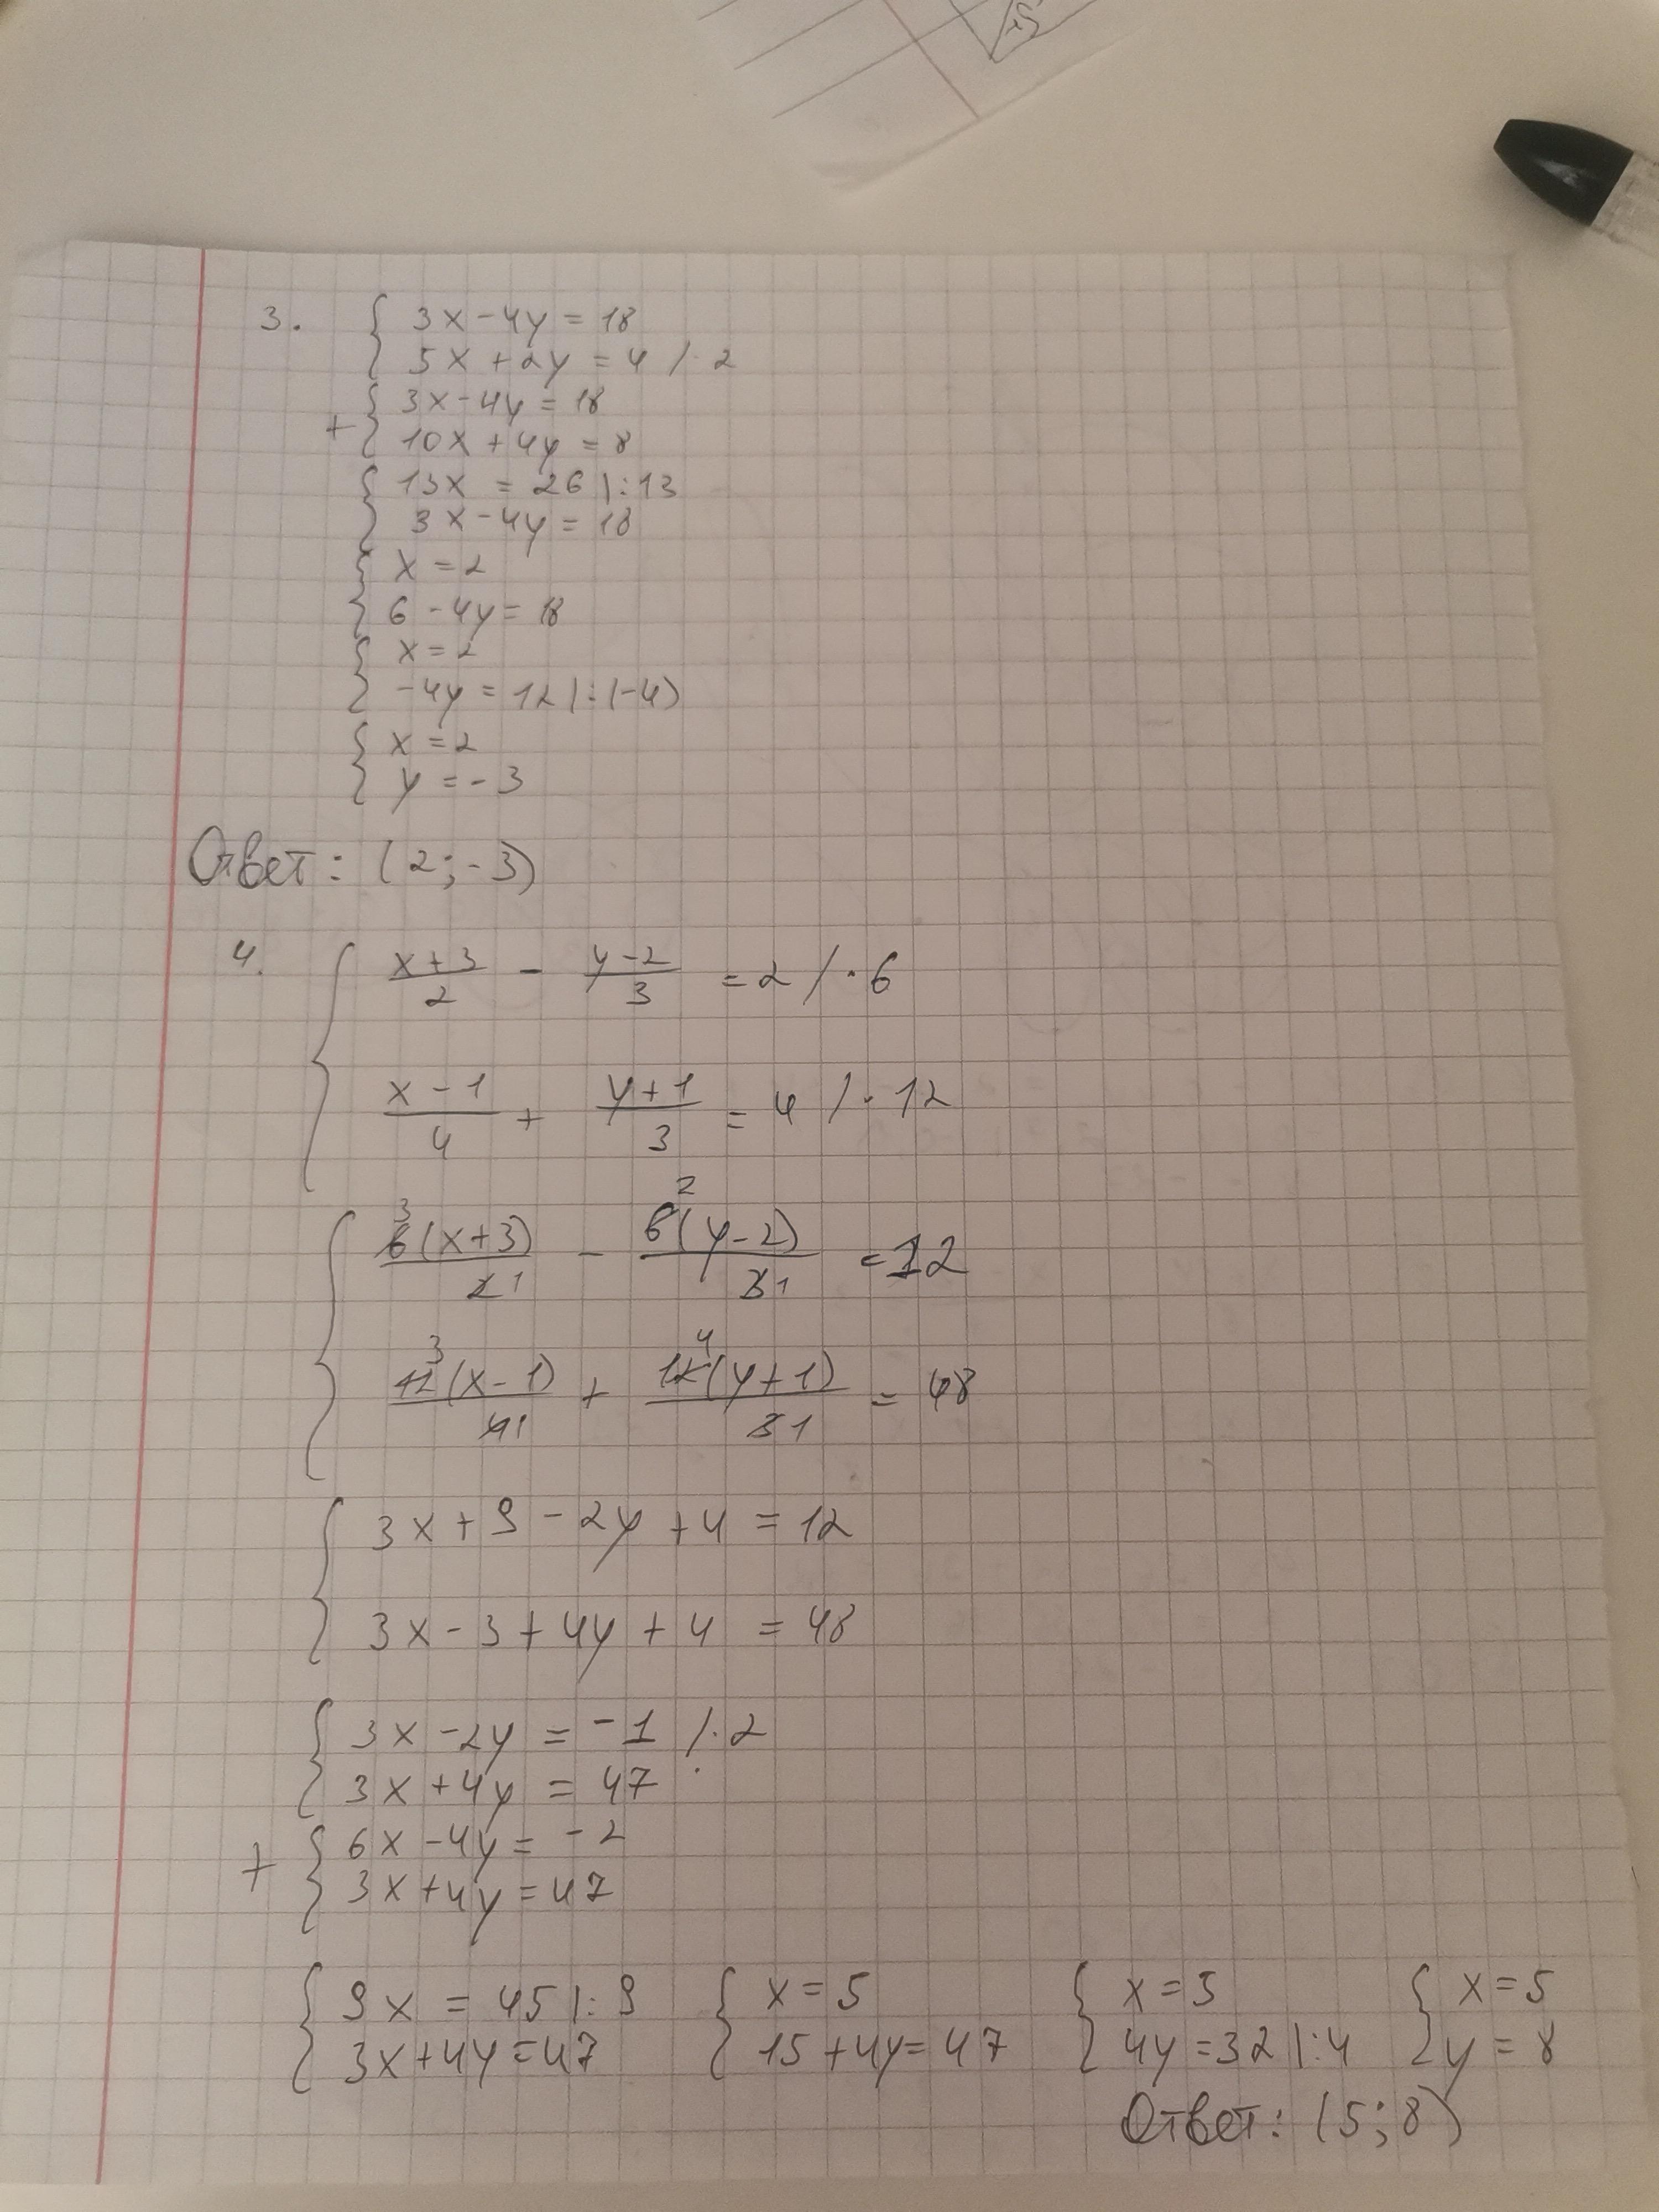 3. { 3x - 4y = 18
5x + 2y = 4 / · 2
+ { 3x - 4y = 18
10x + 4y = 8
{ 13x = 26 | : 13
3x - 4y = 18
{ x = 2
6 - 4y = 18
{ x = 2
-4y = 12 | : (-4)
{ x = 2
y = -3
Ответ: (2; -3)
4. { (x+3)/2 - (y-2)/3 = 2 / · 6
(x-1)/4 + (y+1)/3 = 4 / · 12
{ 6 3 (x+3)/2 1 - 6 2 (y-2)/3 1 = 12
12 3 (x-1)/4 1 + 12 4 (y+1)/3 1 = 48
{ 3x + 9 - 2y + 4 = 12
3x - 3 + 4y + 4 = 48
{ 3x - 2y = -1 / · 2
3x + 4y = 47
+ { 6x - 4y = -2
3x + 4y = 47
{ 9x = 45 | : 9 { x = 5 { x = 5 { x = 5
3x + 4y = 47 15 + 4y = 47 4y = 32 | : 4 y = 8
Ответ: (5; 8)